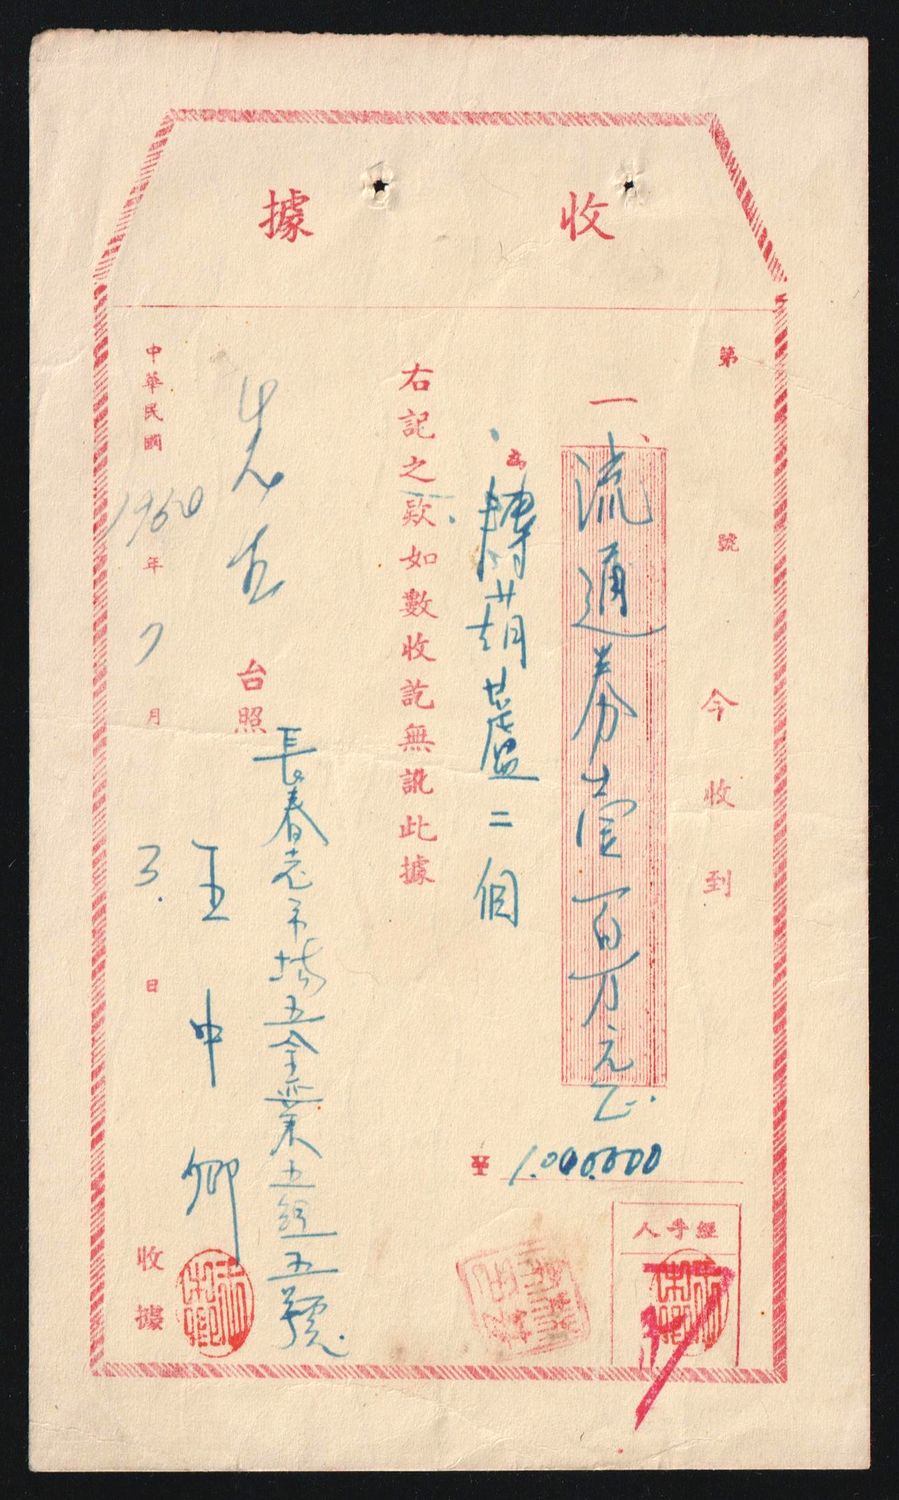 收據
第 號
今收到
一、流通券壹百万元正
¥ 1.000.000
為轉葫蘆二個
右記之欵如數收訖無訛此據
先生 台照
長春老市場五金業五組五號
王申卿 收據
中華民國 1950 年 7 月 3 日
經手人